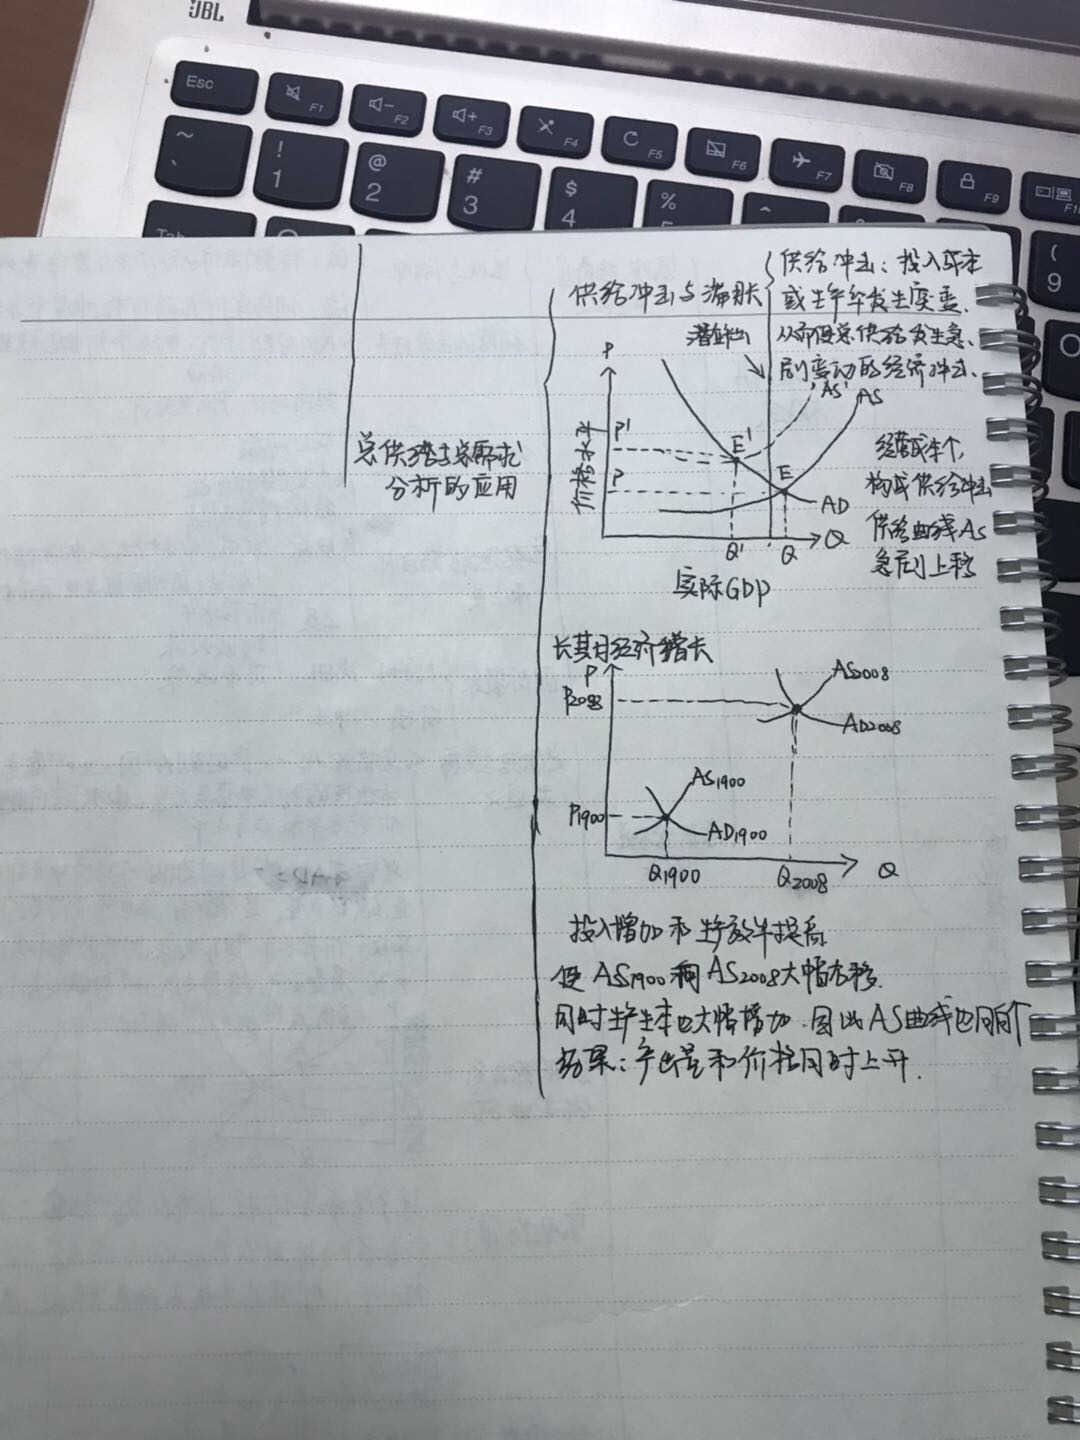 JBL
Esc
F1
F2
F3
F4
F5
F6
F7
F8
F9
F10
~
`
!
1
@
2
#
3
$
4
%
5
^
(
9
Tab
供给冲击与滞胀
供给冲击：投入成本
或生产率发生突变、
从而使总供给发生急
剧变动的经济冲击、
潜在产出
P
价格水平
P'
P
E'
E
AS'
AS
AD
Q'
Q
Q
实际GDP
经营成本个
构成供给冲击
供给曲线AS
急剧上移
总供给与总需求
分析的应用
长期经济增长
P
P2008
P1900
AS2008
AD2008
AS1900
AD1900
Q1900
Q2008
Q
投入增加和生产效率提高
使AS1900和AS2008大幅右移
同时生产成本也大幅增加.因此AS曲线也同向个
结果：产出量和价格同时上升.